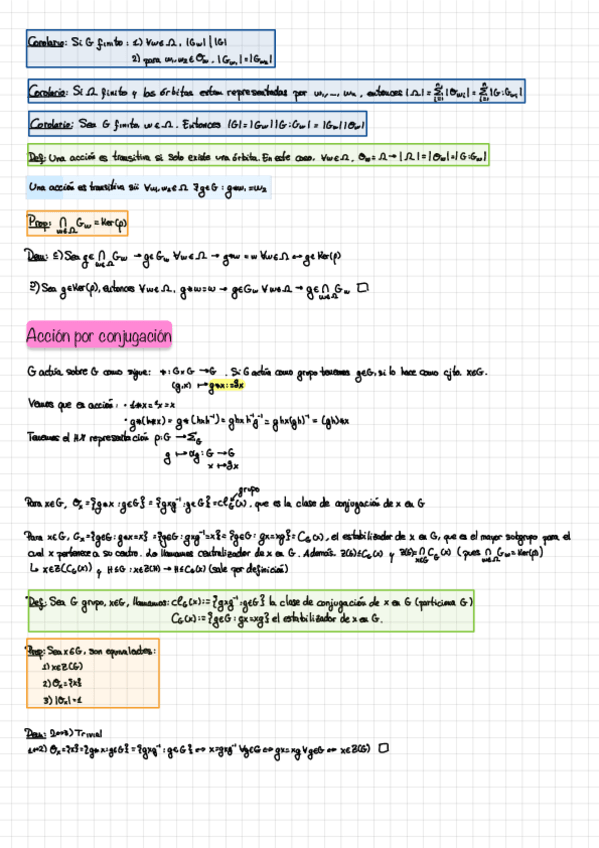 Corolario: Si G finito: 1) ∀w∈Ω, |G_w| | |G|
2) para w₁,w₂∈O_w, |G_w₁|=|G_w₂|
Corolario: Si Ω finito y las órbitas están representadas por w₁,...,wₙ, entonces |Ω|=Σⁿᵢ₌₁|O_wᵢ|=Σⁿᵢ₌₁|G:G_wᵢ|
Corolario: Sea G finito, w∈Ω. Entonces |G|=|G_w||G:G_w|=|G_w||O_w|
Def: Una acción es transitiva si solo existe una órbita. En este caso, ∀w∈Ω, O_w=Ω→|Ω|=|O_w|=|G:G_w|
Una acción es transitiva sii ∀w₁,w₂∈Ω ∃g∈G: g*w₁=w₂
Prop: ⋂_{w∈Ω} G_w = Ker(ρ)
Dem: ⊆) Sea g∈⋂_{w∈Ω} G_w → g∈G_w ∀w∈Ω → g*w=w ∀w∈Ω ↔ g∈Ker(ρ)
⊇) Sea g∈Ker(ρ), entonces ∀w∈Ω, g*w=w → g∈G_w ∀w∈Ω → g∈⋂_{w∈Ω} G_w □
Acción por conjugación
G actúa sobre G como sigue: *: G×G→G. Si G actúa como grupo tenemos g∈G, si lo hace como cjto. x∈G.
(g,x)↦g*x:=ᵍx
Vemos que es acción: · 1*x=¹x=x
· g*(h*x)=g*(hxh⁻¹)=ghxh⁻¹g⁻¹=ghx(gh)⁻¹=(gh)*x
Tenemos el representación ρ:G→Σ_G
g↦α_g:G→G
x↦ᵍx
grupo
Para x∈G, O_x={g*x:g∈G}={gxg⁻¹:g∈G}=cl_G(x), que es la clase de conjugación de x en G
Para x∈G, G_x={g∈G:g*x=x}={g∈G:gxg⁻¹=x}={g∈G:gx=xg}=C_G(x), el estabilizador de x en G, que es el mayor subgrupo para el
cual x pertenece a su centro. Lo llamamos centralizador de x en G. Además, Z(G)≤C_G(x) y Z(G)=⋂_{x∈G} C_G(x) (pues ⋂_{w∈Ω} G_w=Ker(ρ))
↳ x∈Z(C_G(x)) y H≤G: x∈Z(H)→H≤C_G(x) (sale por definición)
Def: Sea G grupo, x∈G, llamamos: cl_G(x):={gxg⁻¹:g∈G} la clase de conjugación de x en G (particiona G)
C_G(x):={g∈G:gx=xg} el estabilizador de x en G.
Prop: Sea x∈G, son equivalentes:
1) x∈Z(G)
2) O_x={x}
3) |O_x|=1
Dem: 2↔3) Trivial
1↔2) O_x={x}={g*x:g∈G}={gxg⁻¹:g∈G}↔x=gxg⁻¹ ∀g∈G↔gx=xg ∀g∈G↔x∈Z(G) □